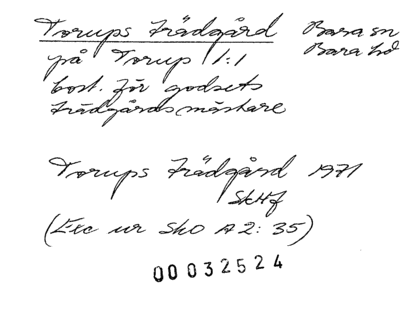 Torups Trädgård Bara sn
Bara hd
på Torup 1:1
bost. för godsets
trädgårdsmästare
Torups Trädgård 1971
SkHf
(Exc ur SkO A2: 35)
00032524